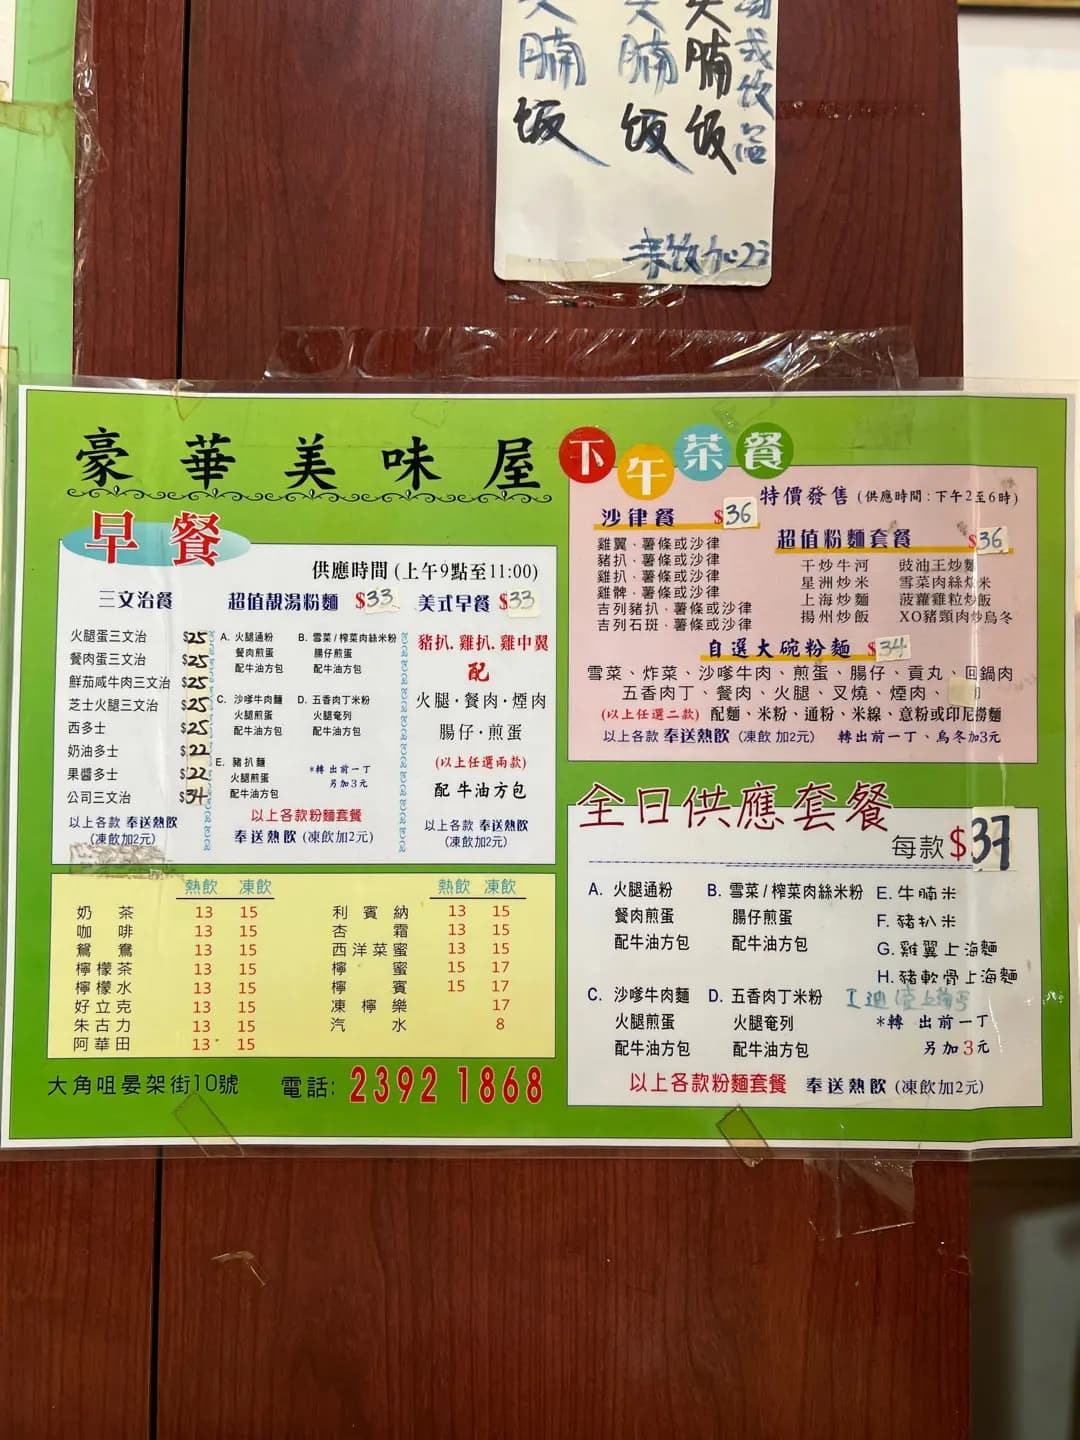 腩 腩 腩 或
飯 飯 飯 飲
凍飲加2元
豪華美味屋
早餐
供應時間 (上午9點至11:00)
三文治餐
火腿蛋三文治 $25
餐肉蛋三文治 $25
鮮茄咸牛肉三文治 $25
芝士火腿三文治 $25
西多士 $25
奶油多士 $22
果醬多士 $22
公司三文治 $34
以上各款 奉送熱飲
(凍飲加2元)
超值靚湯粉麵 $33
A. 火腿通粉
餐肉煎蛋
配牛油方包
B. 雪菜/榨菜肉絲米粉
腸仔煎蛋
配牛油方包
C. 沙嗲牛肉麵
火腿煎蛋
配牛油方包
D. 五香肉丁米粉
火腿奄列
配牛油方包
E. 豬扒麵
火腿煎蛋
配牛油方包
*轉 出前一丁
另加3元
以上各款粉麵套餐
奉送熱飲 (凍飲加2元)
美式早餐 $33
豬扒.雞扒.雞中翼
配
火腿·餐肉·煙肉
腸仔·煎蛋
(以上任選兩款)
配 牛油方包
以上各款 奉送熱飲
(凍飲加2元)
熱飲 凍飲
奶茶 13 15
咖啡 13 15
鴛鴦 13 15
檸檬茶 13 15
檸檬水 13 15
好立克 13 15
朱古力 13 15
阿華田 13 15
熱飲 凍飲
利賓納 13 15
杏霜 13 15
西洋菜蜜 13 15
檸蜜 15 17
檸賓 15 17
凍檸樂 17
汽水 8
大角咀晏架街10號 電話: 2392 1868
下午茶餐
特價發售 (供應時間:下午2至6時)
沙律餐 $36
雞翼、薯條或沙律
豬扒、薯條或沙律
雞扒、薯條或沙律
雞髀、薯條或沙律
吉列豬扒、薯條或沙律
吉列石斑、薯條或沙律
超值粉麵套餐 $36
干炒牛河 豉油王炒麵
星洲炒米 雪菜肉絲炆米
上海炒麵 菠蘿雞粒炒飯
揚州炒飯 XO豬頸肉炒烏冬
自選大碗粉麵 $34
雪菜、炸菜、沙嗲牛肉、煎蛋、腸仔、貢丸、回鍋肉
五香肉丁、餐肉、火腿、叉燒、煙肉、
(以上任選二款) 配麵、米粉、通粉、米線、意粉或印尼撈麵
以上各款 奉送熱飲 (凍飲加2元) 轉出前一丁、烏冬加3元
全日供應套餐
每款 $37
A. 火腿通粉
餐肉煎蛋
配牛油方包
B. 雪菜/榨菜肉絲米粉
腸仔煎蛋
配牛油方包
C. 沙嗲牛肉麵
火腿煎蛋
配牛油方包
D. 五香肉丁米粉
火腿奄列
配牛油方包
E. 牛腩米
F. 豬扒米
G. 雞翼上海麵
H. 豬軟骨上海麵
*轉 出前一丁
另加3元
以上各款粉麵套餐 奉送熱飲 (凍飲加2元)